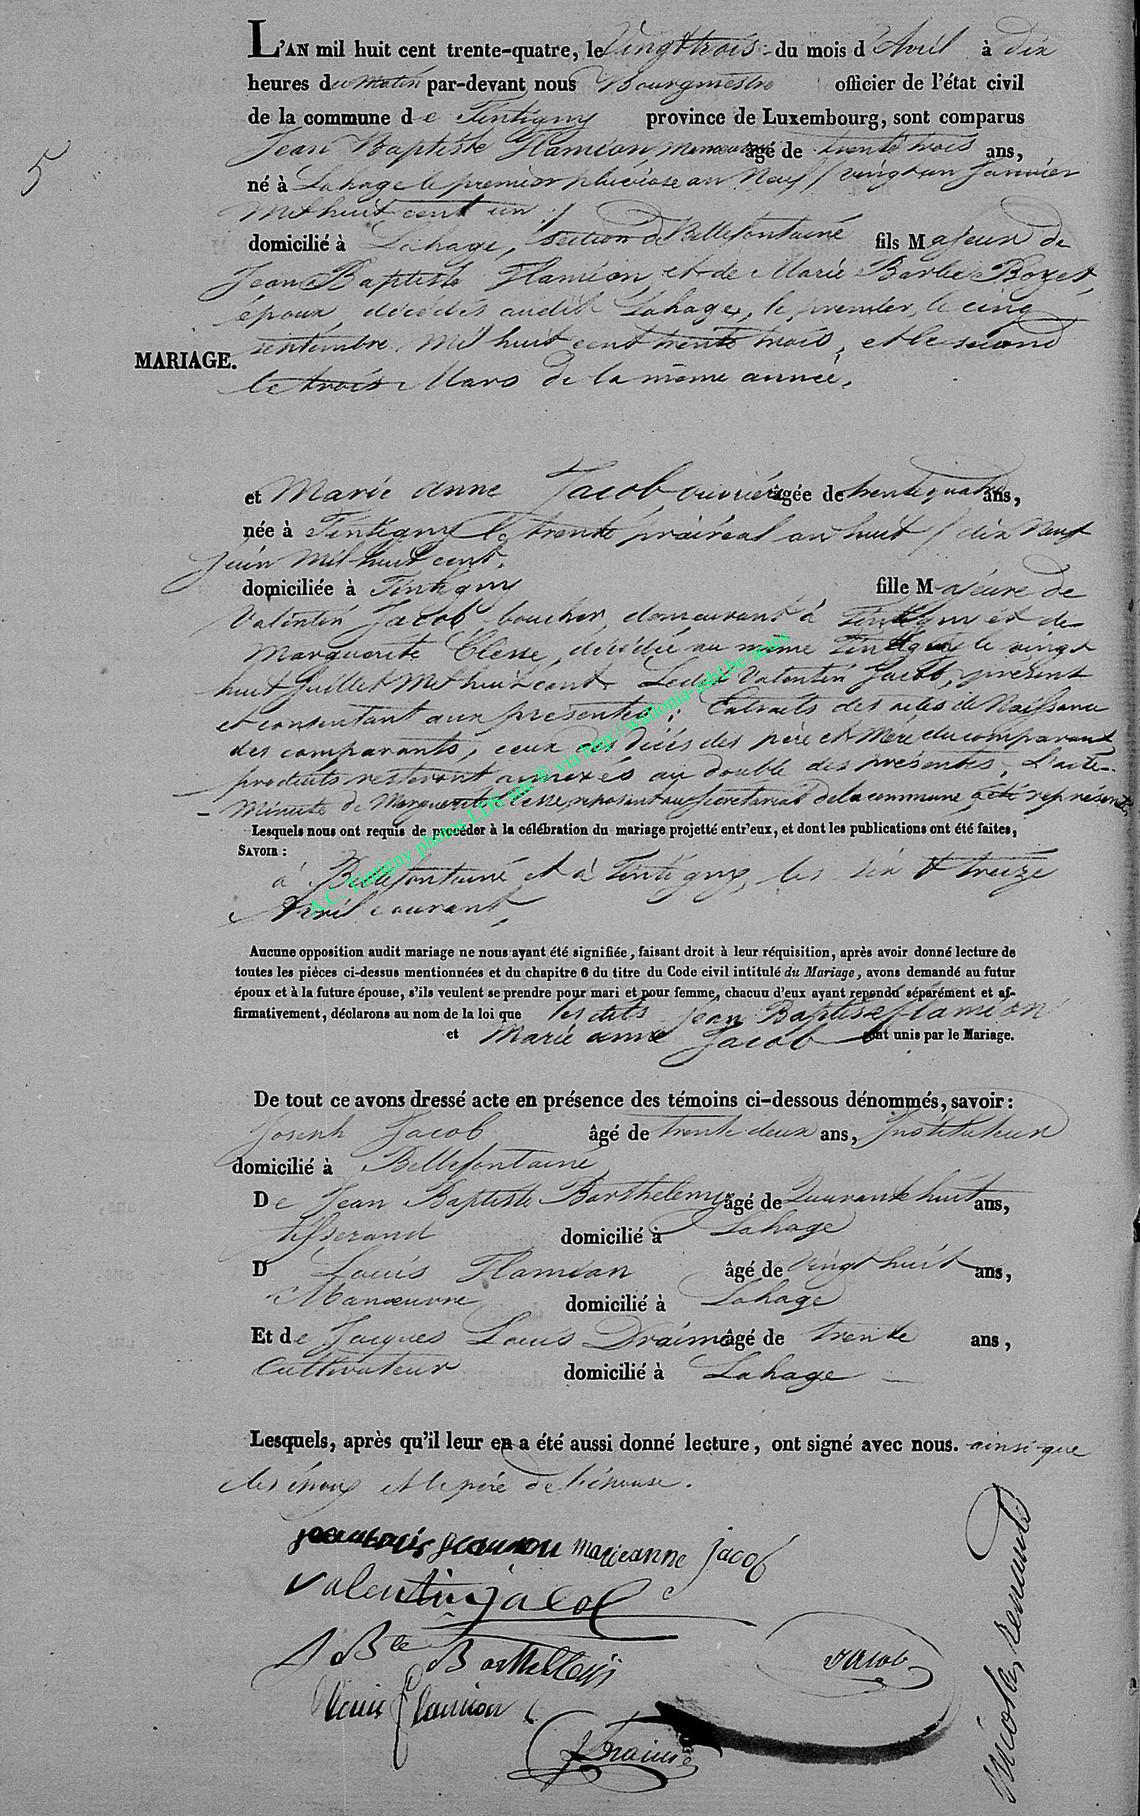 5
L'AN mil huit cent trente-quatre, le Vingt trois du mois d'Avril à dix
heures du Matin par-devant nous Bourgmestre officier de l'état civil
de la commune de Tintigny province de Luxembourg, sont comparus
Jean Baptiste Flamion, âgé de trente trois ans,
né à Lahage le premier pluviose an Neuf / vingt un Janvier
Mil huit cent un /
domicilié à Lahage, section de Bellefontaine fils Majeur de
Jean Baptiste Flamion, et de Marie Barbe Bozet,
époux, décédés audit Lahage, le premier, le cinq
septembre Mil huit cent trente trois, et le second
MARIAGE.
le trois Mars de la même année.
et Marie anne Jacob ouvrière âgée de trente quatre ans,
née à Tintigny le trente prairéal an huit / dix Neuf
Juin Mil huit cent.
domiciliée à Tintigny fille Majeure de
Valentin Jacob boucher, demeurant à Tintigny et de
Marguerite Clesse, décédée au même Tintigny le vingt
huit Juillet Mil huit cent. Ledit Valentin Jacob, présent
et consentant aux présentes. Extraits des actes de Naissance
des comparants, ceux de décès des père et Mère du comparant
produits resteront annexés au double des présentes. L'acte
Minute de Marguerite Clesse, reposant au Secretariat de la commune a été représenté
Lesquels nous ont requis de procéder à la célébration du mariage projetté entr'eux, et dont les publications ont été faites,
SAVOIR :
à Bellefontaine et à Tintigny, les six & treize
Avril courant.
Aucune opposition audit mariage ne nous ayant été signifiée, faisant droit à leur réquisition, après avoir donné lecture de
toutes les pièces ci-dessus mentionnées et du chapitre 6 du titre du Code civil intitulé du Mariage, avons demandé au futur
époux et à la future épouse, s'ils veulent se prendre pour mari et pour femme, chacun d'eux ayant repondu séparément et af-
firmativement, déclarons au nom de la loi que les dits Jean Baptiste flamion
et Marie anne Jacob sont unis par le Mariage.
De tout ce avons dressé acte en présence des témoins ci-dessous dénommés, savoir :
Joseph Jacob âgé de trente deux ans, Instituteur
domicilié à Bellefontaine
De Jean Baptiste Barthelemy âgé de Quarante huit ans,
tisserand domicilié à Lahage
D Louis Flamion âgé de vingt huit ans,
Manœuvre domicilié à Lahage
Et de Jacques Louis Draime âgé de trente ans,
Cultivateur domicilié à Lahage
Lesquels, après qu'il leur en a été aussi donné lecture, ont signé avec nous. ainsi que
les époux et le père de l'épouse.
marieanne jacob
valentin jacob
J Bte Barthelemy
Jacob
Louis flamion
Draime
A.C. Tintigny photos LDS site© via http://wallonia-asbl.be/actes